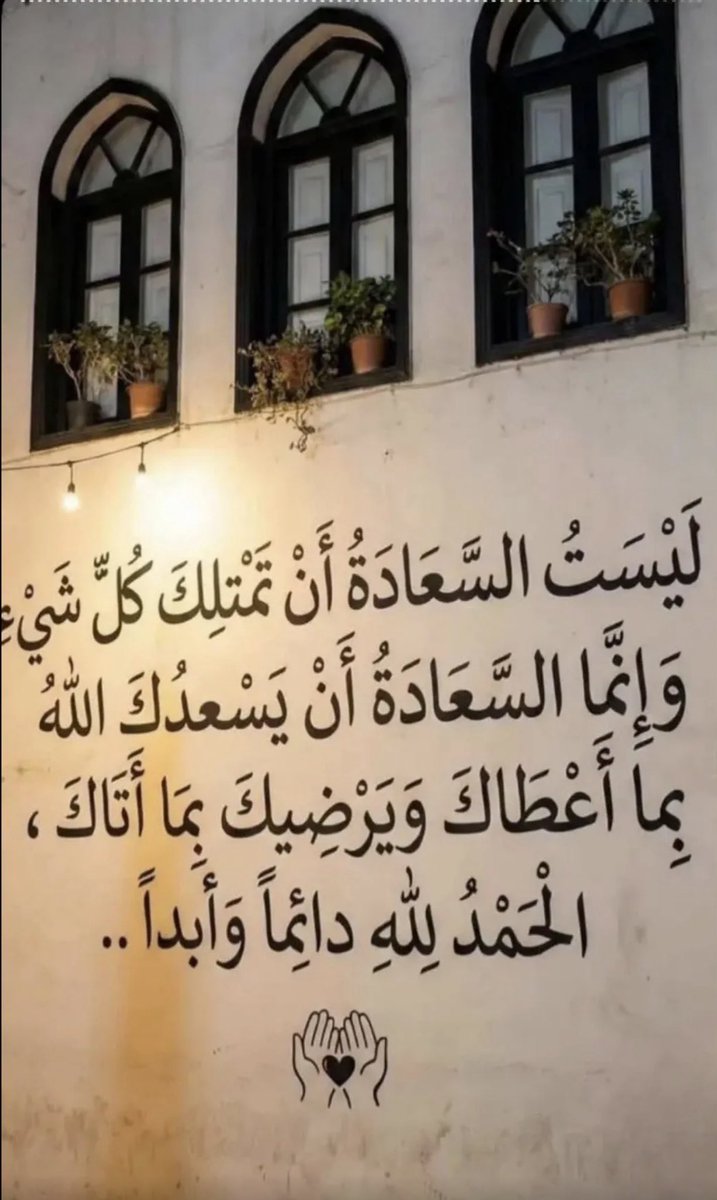 لَيْسَتُ السَّعَادَةُ أَنْ تَمْتلِكَ كُلّ شَيْءِ
وَإِنَّما السَّعَادَةُ أَنْ يَسْعدُكَ اللهُ
بِما أَعْطَاكَ وَيَرْضِيكَ بِمَا أَتَاكَ ،
الْحَمْدُ لِلّٰهِ دائِماً وَأَبداً ..